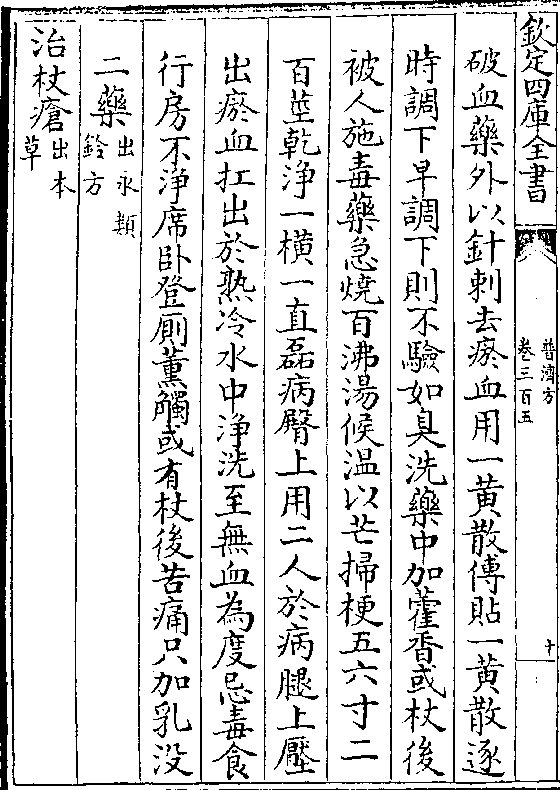 欽定四庫全書
普濟方
卷三百五
十
破血藥外以針刺去瘀血用一黄散傅貼一黄散逐
時調下早調下則不驗如臭洗藥中加藿香或杖後
被人施毒藥急燒百沸湯候温以芒掃梗五六寸二
百莖乾浄一橫一直磊病臀上用二人於病腿上壓
出瘀血扛出於熟冷水中浄洗至無血為度忌毒食
行房不浄席卧登厠薫觸或有杖後苦痛只加乳没
二藥出永類
鈐方
治杖瘡出本
草